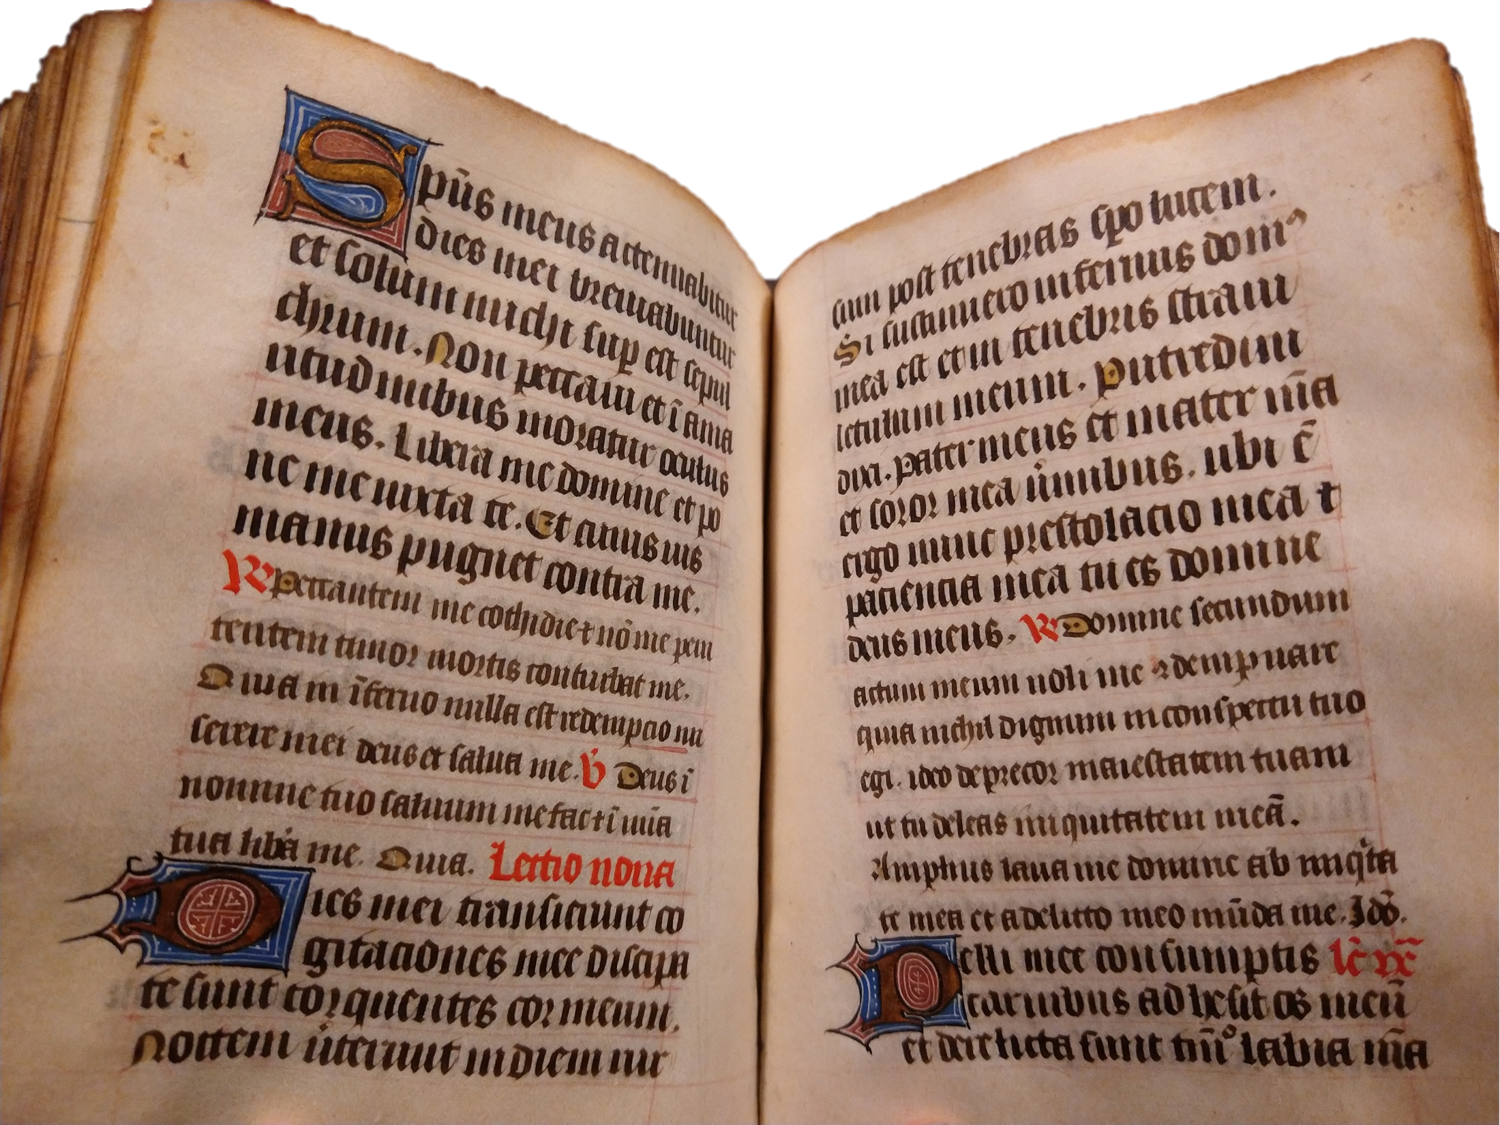 Spūs meus actenuabitur
dies mei breuiabuntur
et solum michi sup est sepul
chrum. Non peccaui et ī ama
ritudinibus moratur oculus
meus. Libera me domine et po
ne me iuxta te. Et cuius uis
manus pugnet contra me.
R Peccantem me cothidie ⁊ nō me peni
tentem timor mortis conturbat me.
Quia in īferno nulla est redempcio mi
serere mei deus et salua me. V Deus ī
nomine tuo saluum me fac ⁊ ī uūa
tua liba me. Quia. Lectio nona
Dies mei transierunt co
gitaciones mee dissipa
te sunt torquentes cor meum.
Noctem uterunt in diem et rur
sum post tenebras spo lucem.
Si sustinuero infernus dom⁹
mea est et in tenebris straui
lectulum meum. Putredini
dixi. pater meus et mater m̄a
et soror mea u̇mibus. ubi ē
ergo nunc prestolacio mea ⁊
paciencia mea tu es domine
deus meus. R Domine secundum
actum meum noli me iudicare
quia nichil dignum in conspectu tuo
egi. ideo deprecor maiestatem tuam
ut tu deleas iniquitatem meā.
Amplius laua me domine ab iniqita
te mea et a delicto meo mūda me. Idō.
Pelli mee consumptis lc̄ ix
carnibus adhesit os meū
et derelicta sunt tm̄º labia m̄a